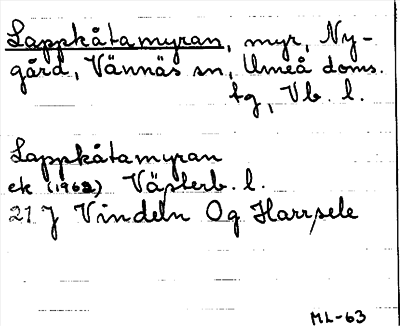 Lappkåtamyran, myr, Ny-
gård, Vännäs sn, Umeå doms.
tg, Vb. l.
Lappkåtamyran
ek (1962) Västerb. l.
21 J Vindeln Og Harrsele
ML-63